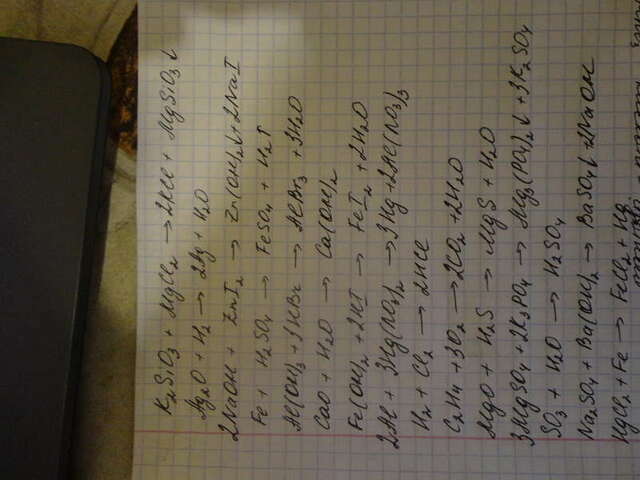 K₂SiO₃ + MgCl₂ → 2KCl + MgSiO₃↓
Ag₂O + H₂ → 2Ag + H₂O
2NaOH + ZnI₂ → Zn(OH)₂↓ + 2NaI
Fe + H₂SO₄ → FeSO₄ + H₂↑
Al(OH)₃ + 3HBr → AlBr₃ + 3H₂O
CaO + H₂O → Ca(OH)₂
Fe(OH)₂ + 2HI → FeI₂ + 2H₂O
2Al + 3Hg(NO₃)₂ → 3Hg + 2Al(NO₃)₃
H₂ + Cl₂ → 2HCl
C₂H₄ + 3O₂ → 2CO₂ + 2H₂O
MgO + H₂S → MgS + H₂O
3MgSO₄ + 2K₃PO₄ → Mg₃(PO₄)₂↓ + 3K₂SO₄
SO₃ + H₂O → H₂SO₄
Na₂SO₄ + Ba(OH)₂ → BaSO₄↓ + 2NaOH
HgCl₂ + Fe → FeCl₂ + Hg